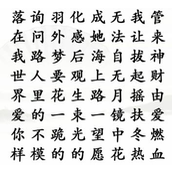 落询羽化成无我管
在问外感她法让来
我路梦后海自拔神
世人要观上无起财
界里花生路月摇由
爱的一束一镜扶爱
你不跪光望中冬燃
样模的的愿花热血